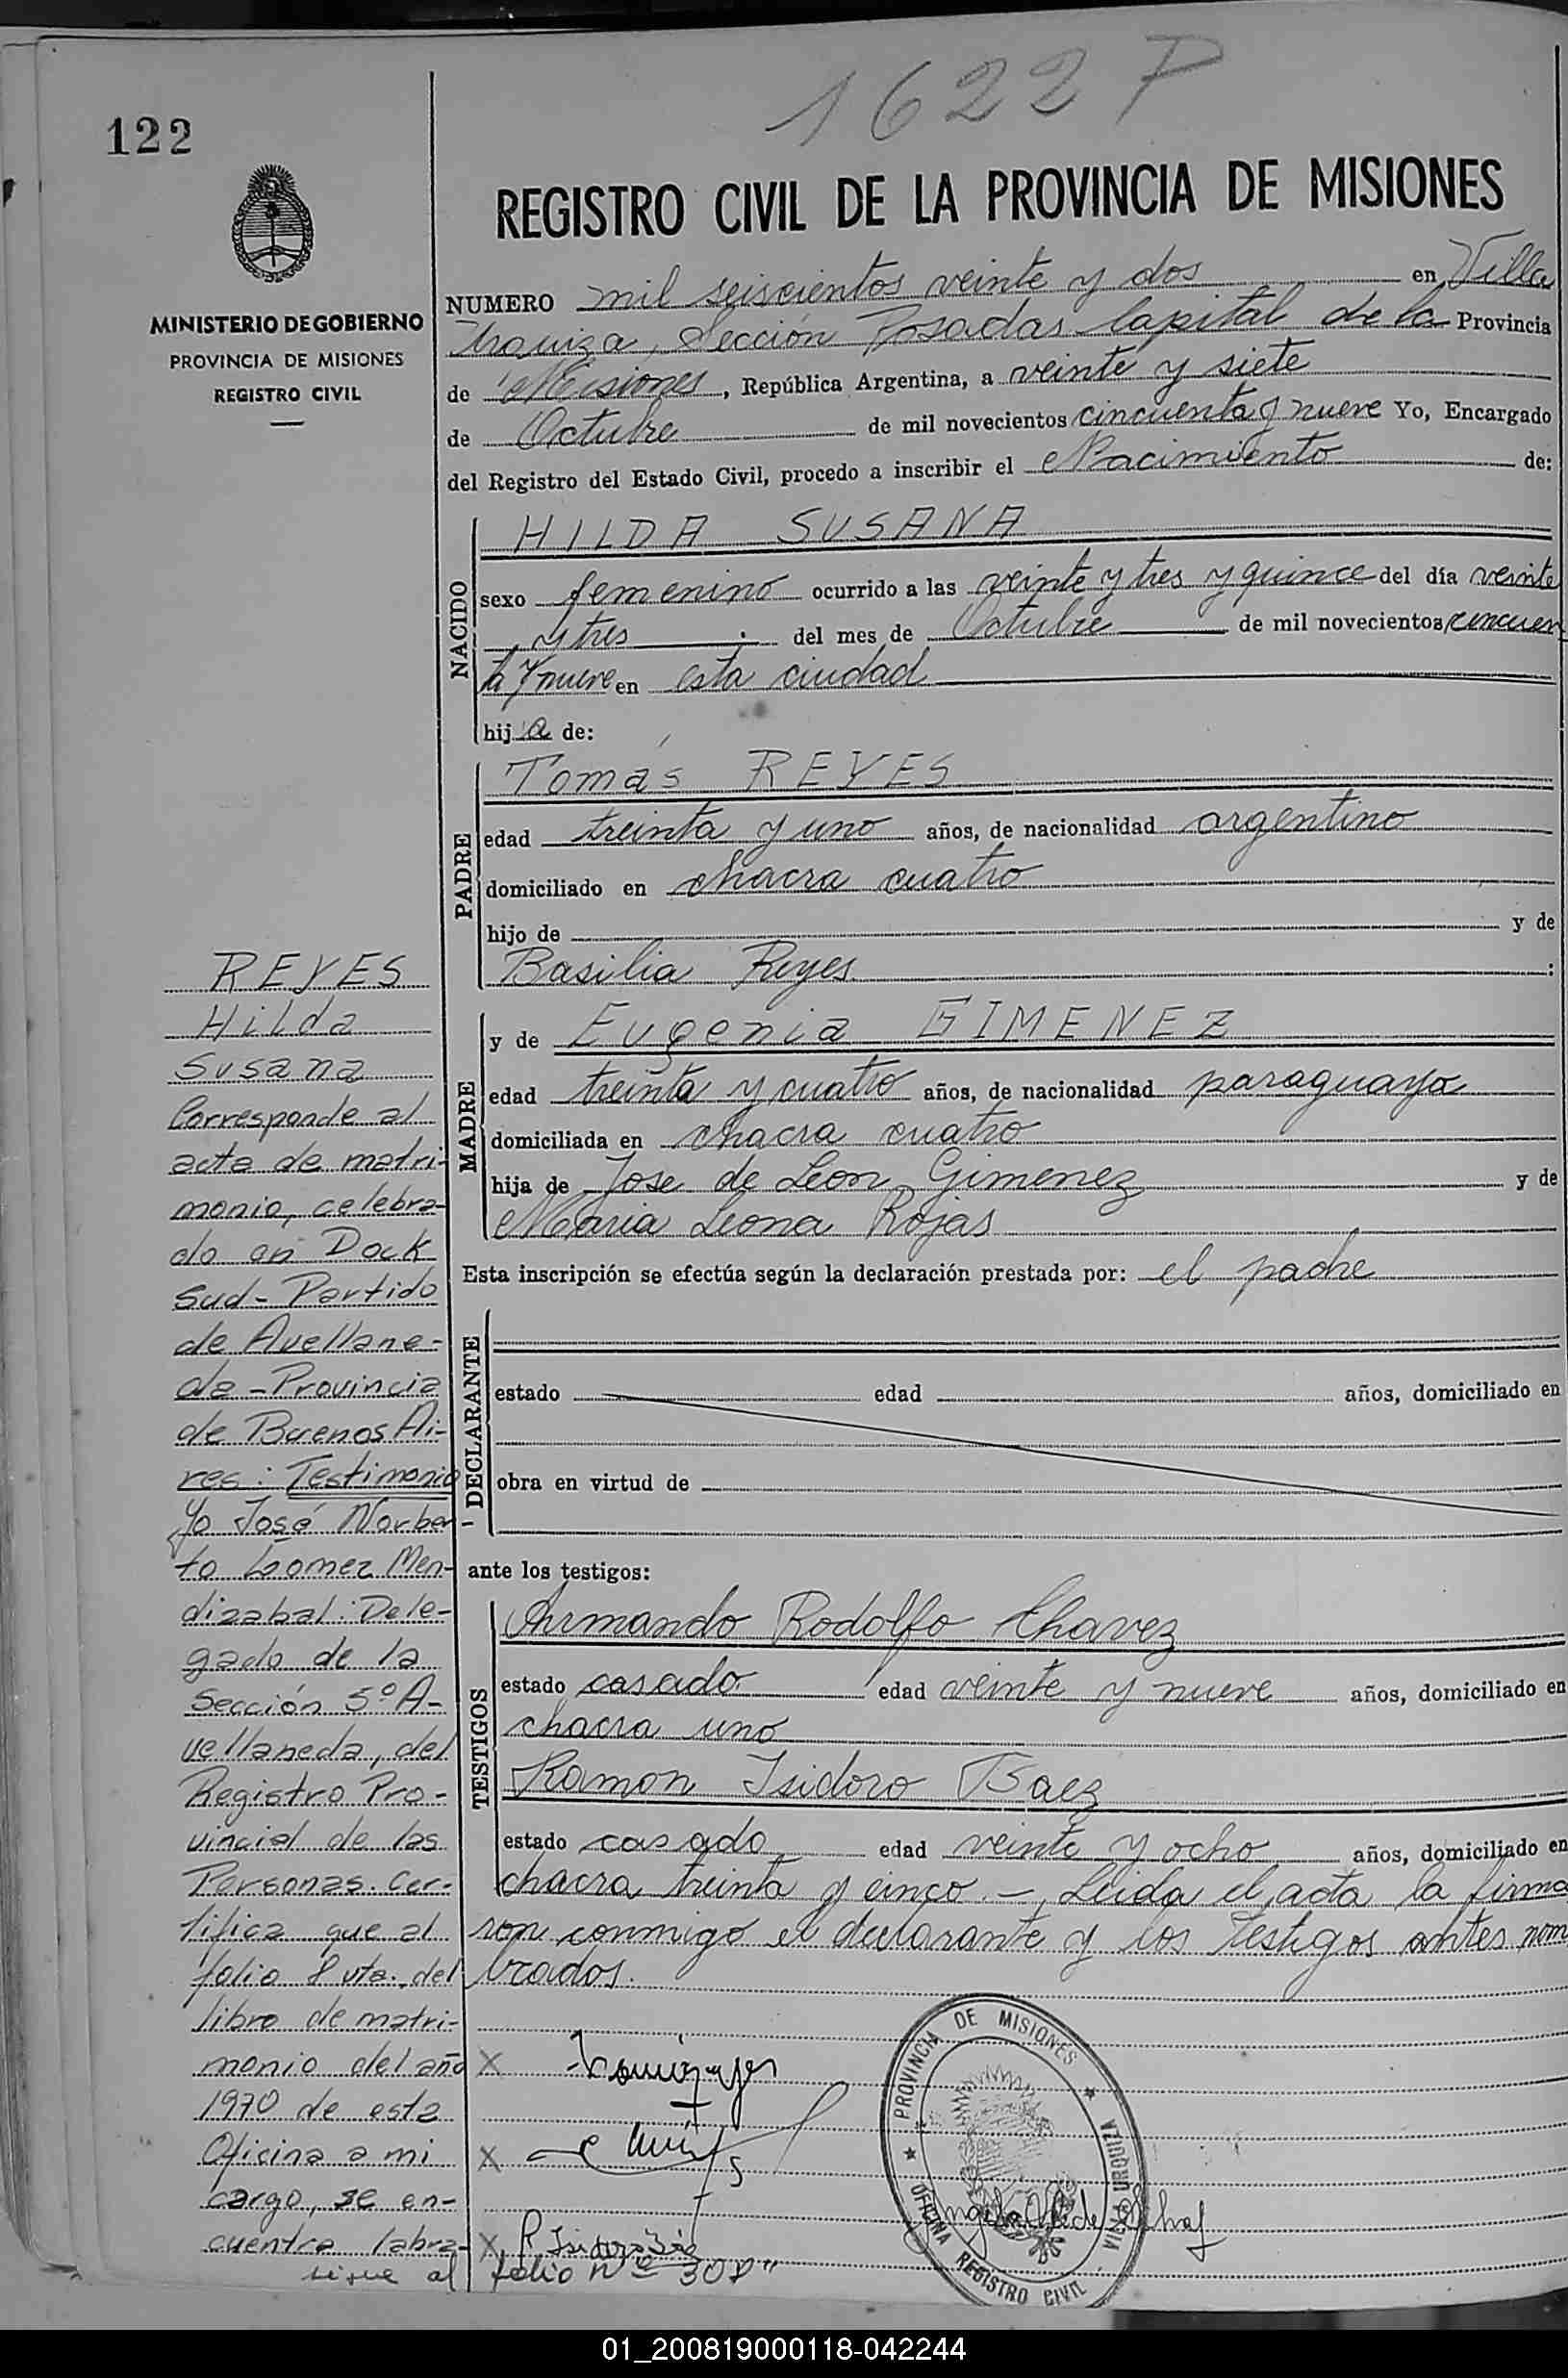 1622 P
122
REGISTRO CIVIL DE LA PROVINCIA DE MISIONES
MINISTERIO DE GOBIERNO
PROVINCIA DE MISIONES
REGISTRO CIVIL
NUMERO mil seiscientos veinte y dos en Villa
Urquiza, Sección Posadas Capital de la Provincia
de Misiones, República Argentina, a veinte y siete
de Octubre de mil novecientos cincuenta y nueve Yo, Encargado
del Registro del Estado Civil, procedo a inscribir el Nacimiento de:
NACIDO
HILDA SUSANA
sexo femenino ocurrido a las veinte y tres y quince del día veinte
y tres del mes de Octubre de mil novecientos cincuen
ta y nueve en esta ciudad
hija de:
PADRE
Tomás REYES
edad treinta y uno años, de nacionalidad argentino
domiciliado en chacra cuatro
hijo de y de
Basilia Reyes :
MADRE
y de Eugenia GIMENEZ
edad treinta y cuatro años, de nacionalidad paraguaya
domiciliada en chacra cuatro
hija de Jose de Leon Gimenez y de
Maria Leona Rojas
Esta inscripción se efectúa según la declaración prestada por: el padre
DECLARANTE
estado edad años, domiciliado en
obra en virtud de
ante los testigos:
TESTIGOS
Armando Rodolfo Chavez
estado casado edad veinte y nueve años, domiciliado en
chacra uno
Ramon Isidoro Baez
estado casado edad veinte y ocho años, domiciliado en
chacra treinta y cinco.- Leida el acta la firma
ron conmigo el declarante y los testigos antes nom
brados.
REYES
Hilda
Susana
Corresponde al
acta de matri-
monio, celebra-
do en Dock
Sud-Partido
de Avellane-
da-Provincia
de Buenos Ai-
res: Testimonio
Yo José Norber-
to Gomez Men-
dizabal: Dele-
gado de la
Sección 5º A-
vellaneda, del
Registro Pro-
vincial de las
Personas. Cer-
tifica que al
folio 8 vta. del
libro de matri-
monio del año
1970 de esta
Oficina a mi
cargo, se en-
cuentra labra-
sigue al folio Nº 308"
X
X
X R Isidoro
PROVINCIA DE MISIONES
VILLA URQUIZA
OFICINA REGISTRO CIVIL
01_200819000118-042244